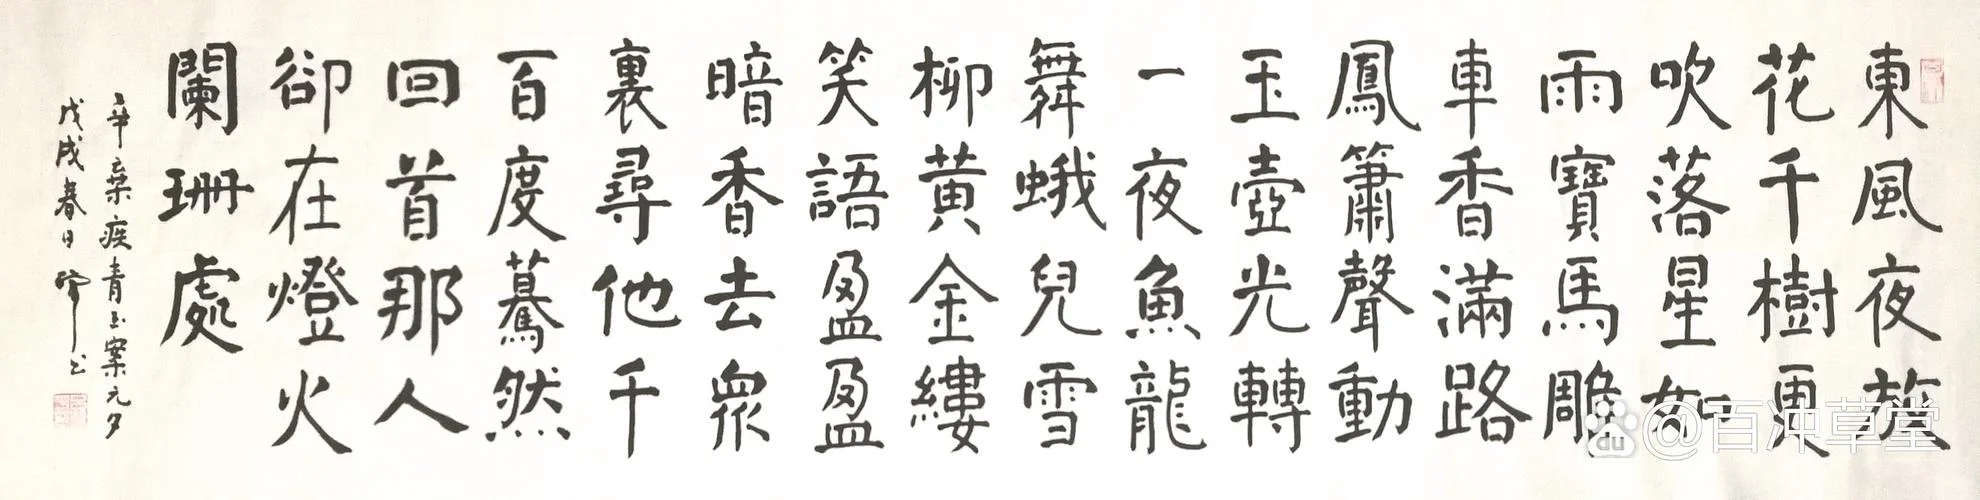 東風夜放
花千樹更
吹落星如
雨寶馬雕
車香滿路
鳳簫聲動
玉壺光轉
一夜魚龍
舞蛾兒雪
柳黄金縷
笑語盈盈
暗香去衆
裏尋他千
百度驀然
回首那人
卻在燈火
闌珊處
辛棄疾青玉案元夕
戊戌春日
@百冲草堂